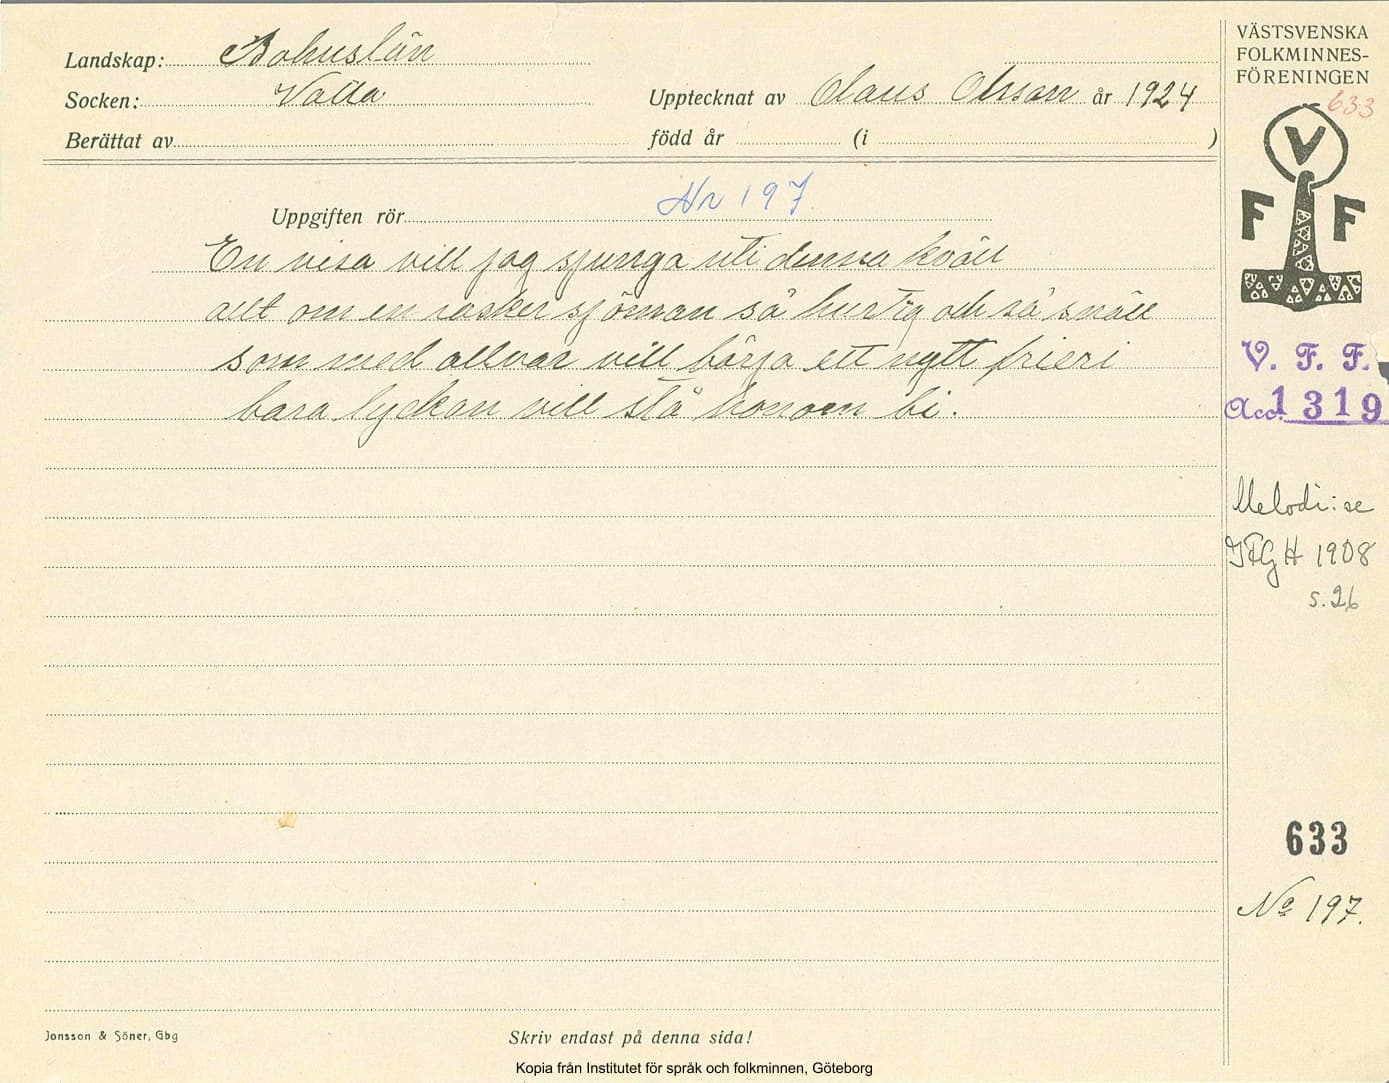 Landskap: Bohuslän
Socken: Valla
Upptecknat av Olaus Olsson år 1924
Berättat av
född år (i )
Uppgiften rör Nr 197
En visa vill jag sjunga uti denna kväll
allt om en rasker sjöman så hurtig och så snäll
som med allvar vill börja ett nytt frieri
bara lyckan vill stå honom bi.
Jonsson & Söner, Gbg
Skriv endast på denna sida!
Kopia från Institutet för språk och folkminnen, Göteborg
VÄSTSVENSKA
FOLKMINNES-
FÖRENINGEN
633
V
F F
V. F. F.
Acc. 1319
Melodi: se
IFGH 1908
s. 26
633
No 197.